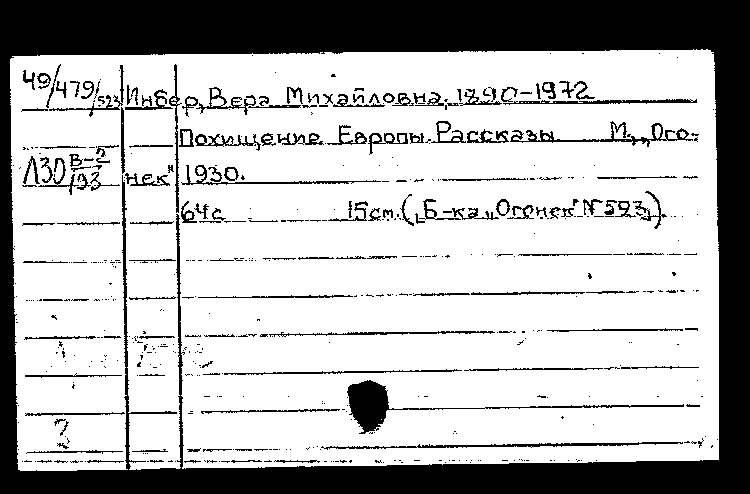 49/479/523 Инбер, Вера Михайловна, 1890-1972
Похищение Европы. Рассказы М., „Ого-
Л30 В-2/193 нек" 1930.
64с 15см. („Б-ка „Огонек" № 523„).
3